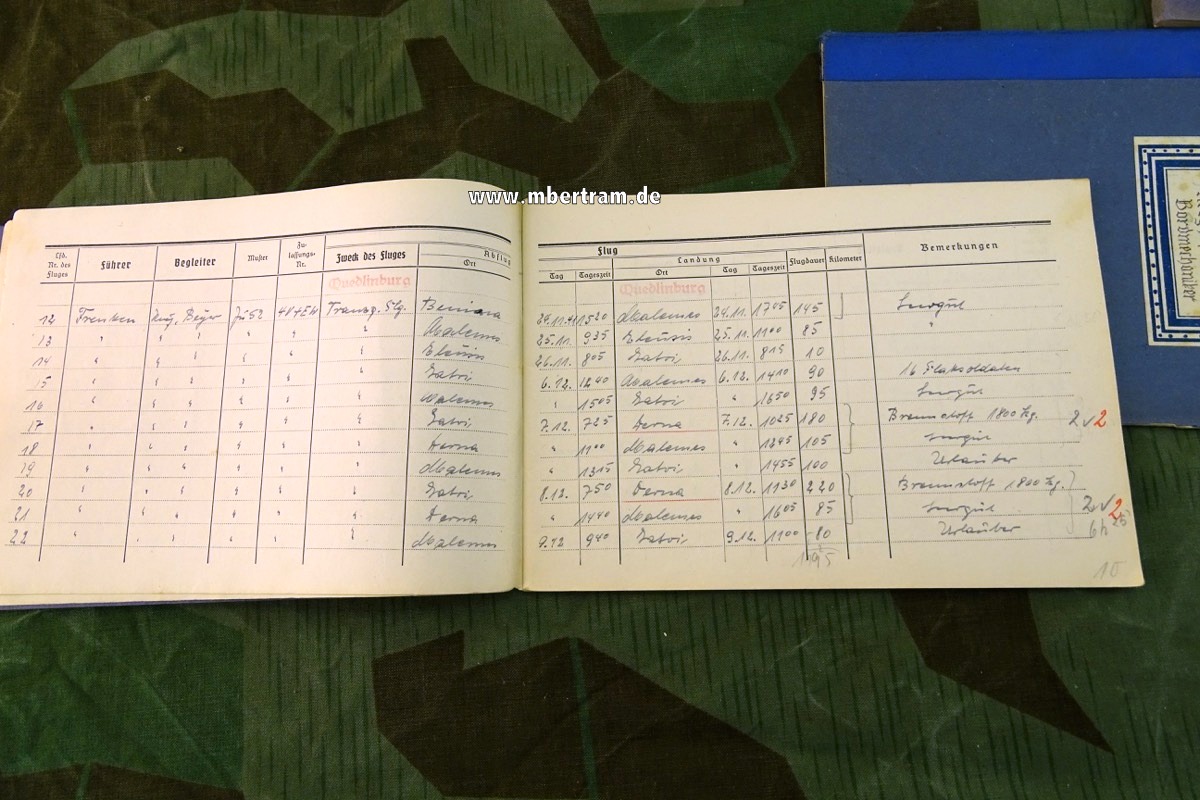 www.mbertram.de
Bordmechaniker
Lfd. Nr. des Fluges Führer Begleiter Muster Zulassungs-Nr. Zweck des Fluges Abflug Ort
Quedlinburg
12 Ju 52 4V+EH Transp. Flg. Benina
13 " " " " " " Malemes
14 " " " " " " Eleusis
15 " " " " " " Tatoi
16 " " " " " " Malemes
17 " " " " " " Tatoi
18 " " " " " " Derna
19 " " " " " " Malemes
20 " " " " " " Tatoi
21 " " " " " " Derna
22 " " " " " " Malemes
Flug
Tag Tageszeit Landung Ort Tag Tageszeit Flugdauer Kilometer Bemerkungen
Quedlinburg
24.11.41 1520 Malemes 24.11. 1705 145
25.11. 935 Eleusis 25.11. 1100 85 "
26.11. 805 Tatoi 26.11. 815 10
6.12. 1240 Malemes 6.12. 1410 90 16 Flaksoldaten
" 1505 Tatoi " 1650 95
7.12. 725 Derna 7.12. 1025 180 Brennstoff 1800 Kg.
" 1100 Malemes " 1245 105
" 1315 Tatoi " 1455 100 Urlauber
8.12. 750 Derna 8.12. 1130 220 Brennstoff 1800 Kg.
" 1440 Malemes " 1605 85
9.12 940 Tatoi 9.12. 1100 80 Urlauber
10